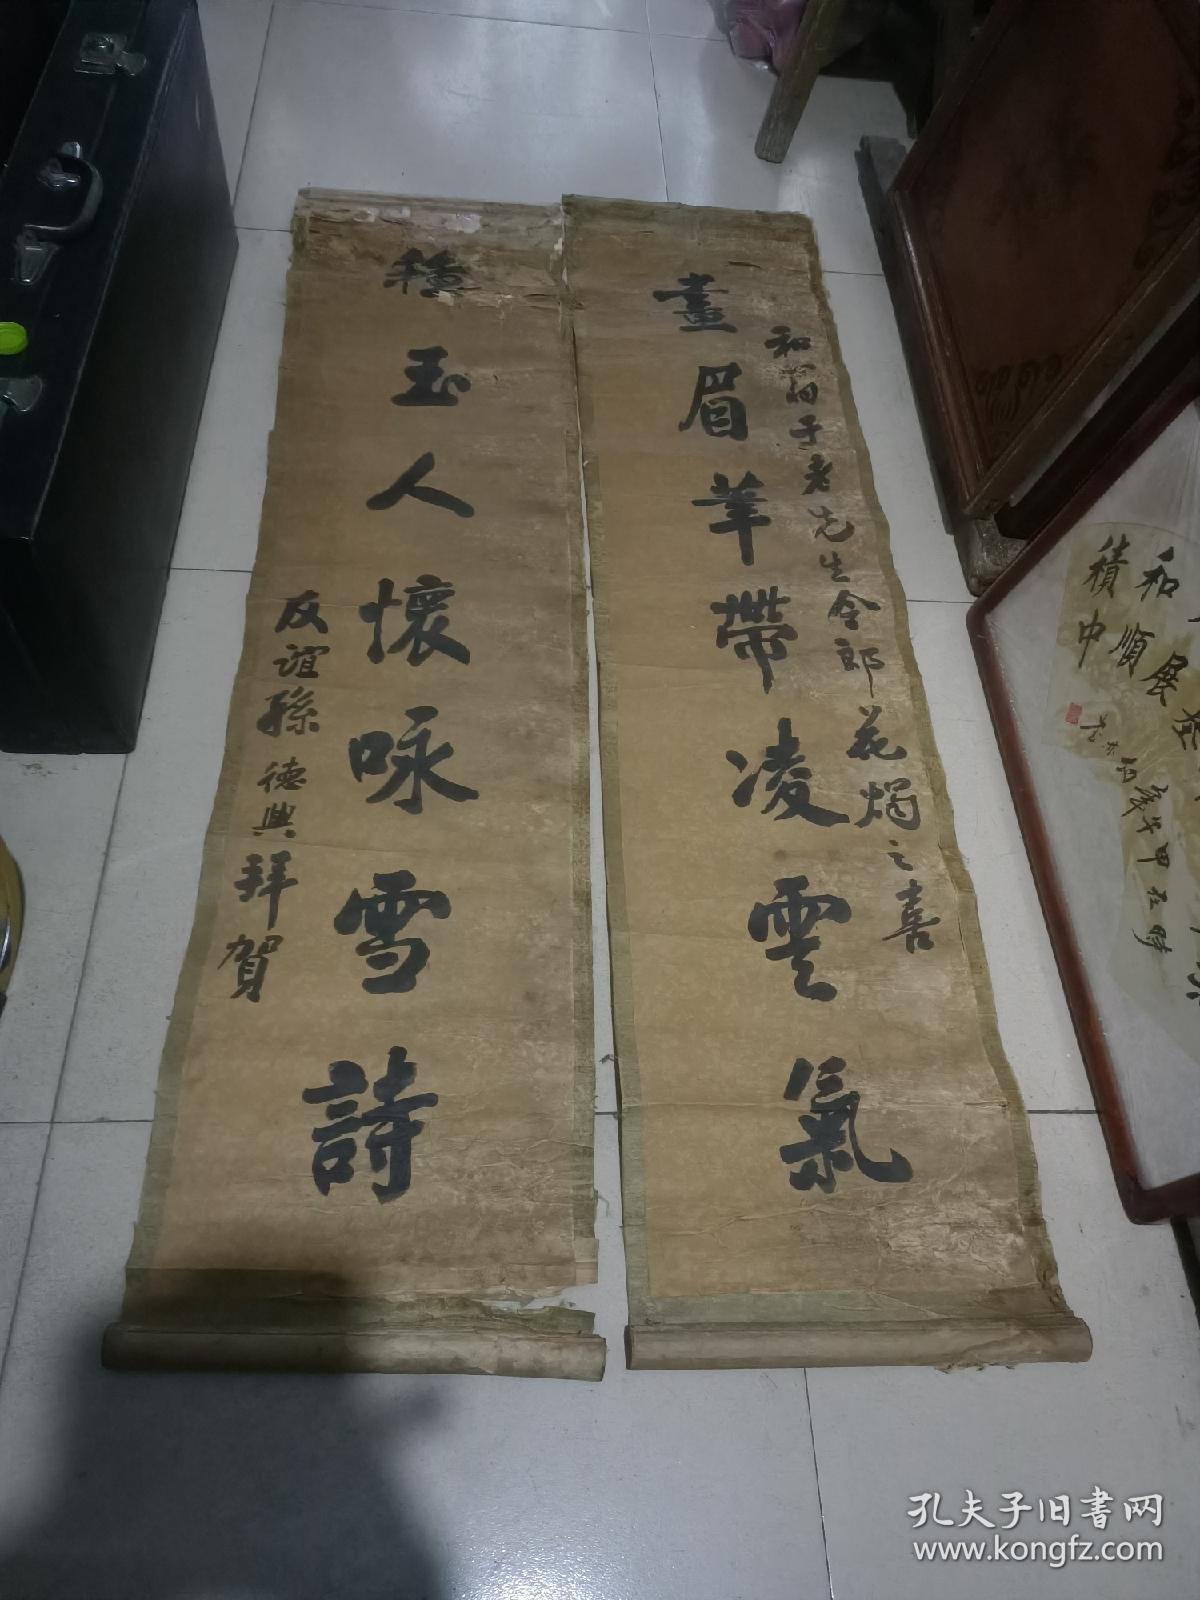 畫眉筆帶凌雲氣
和翁于老先生令郎花燭之喜
種玉人懷咏雪詩
友誼孫德興拜賀
和順
積中
孔夫子旧书网
www.kongfz.com